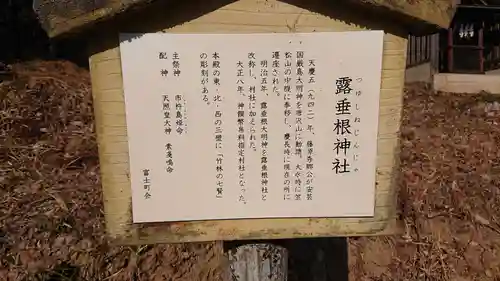 露垂根神社
つゆしねじんじゃ
天慶五（九四二）年、藤原秀郷公が安芸
国厳島大明神を唐沢山に勧請。大永時に
松山の中腹に奉移し、慶長時に現在の所に
遷座された。
明治五年、露垂根大明神を露垂根神社と
改称し、村社に加えられた。
大正八年、神饌幣帛料指定村社となった。
本殿の東・北・西の三壁に「竹林の七賢」
の彫刻がある。
主祭神 市杵島姫命
配神 天照皇大神 素戔嗚命
富士町会